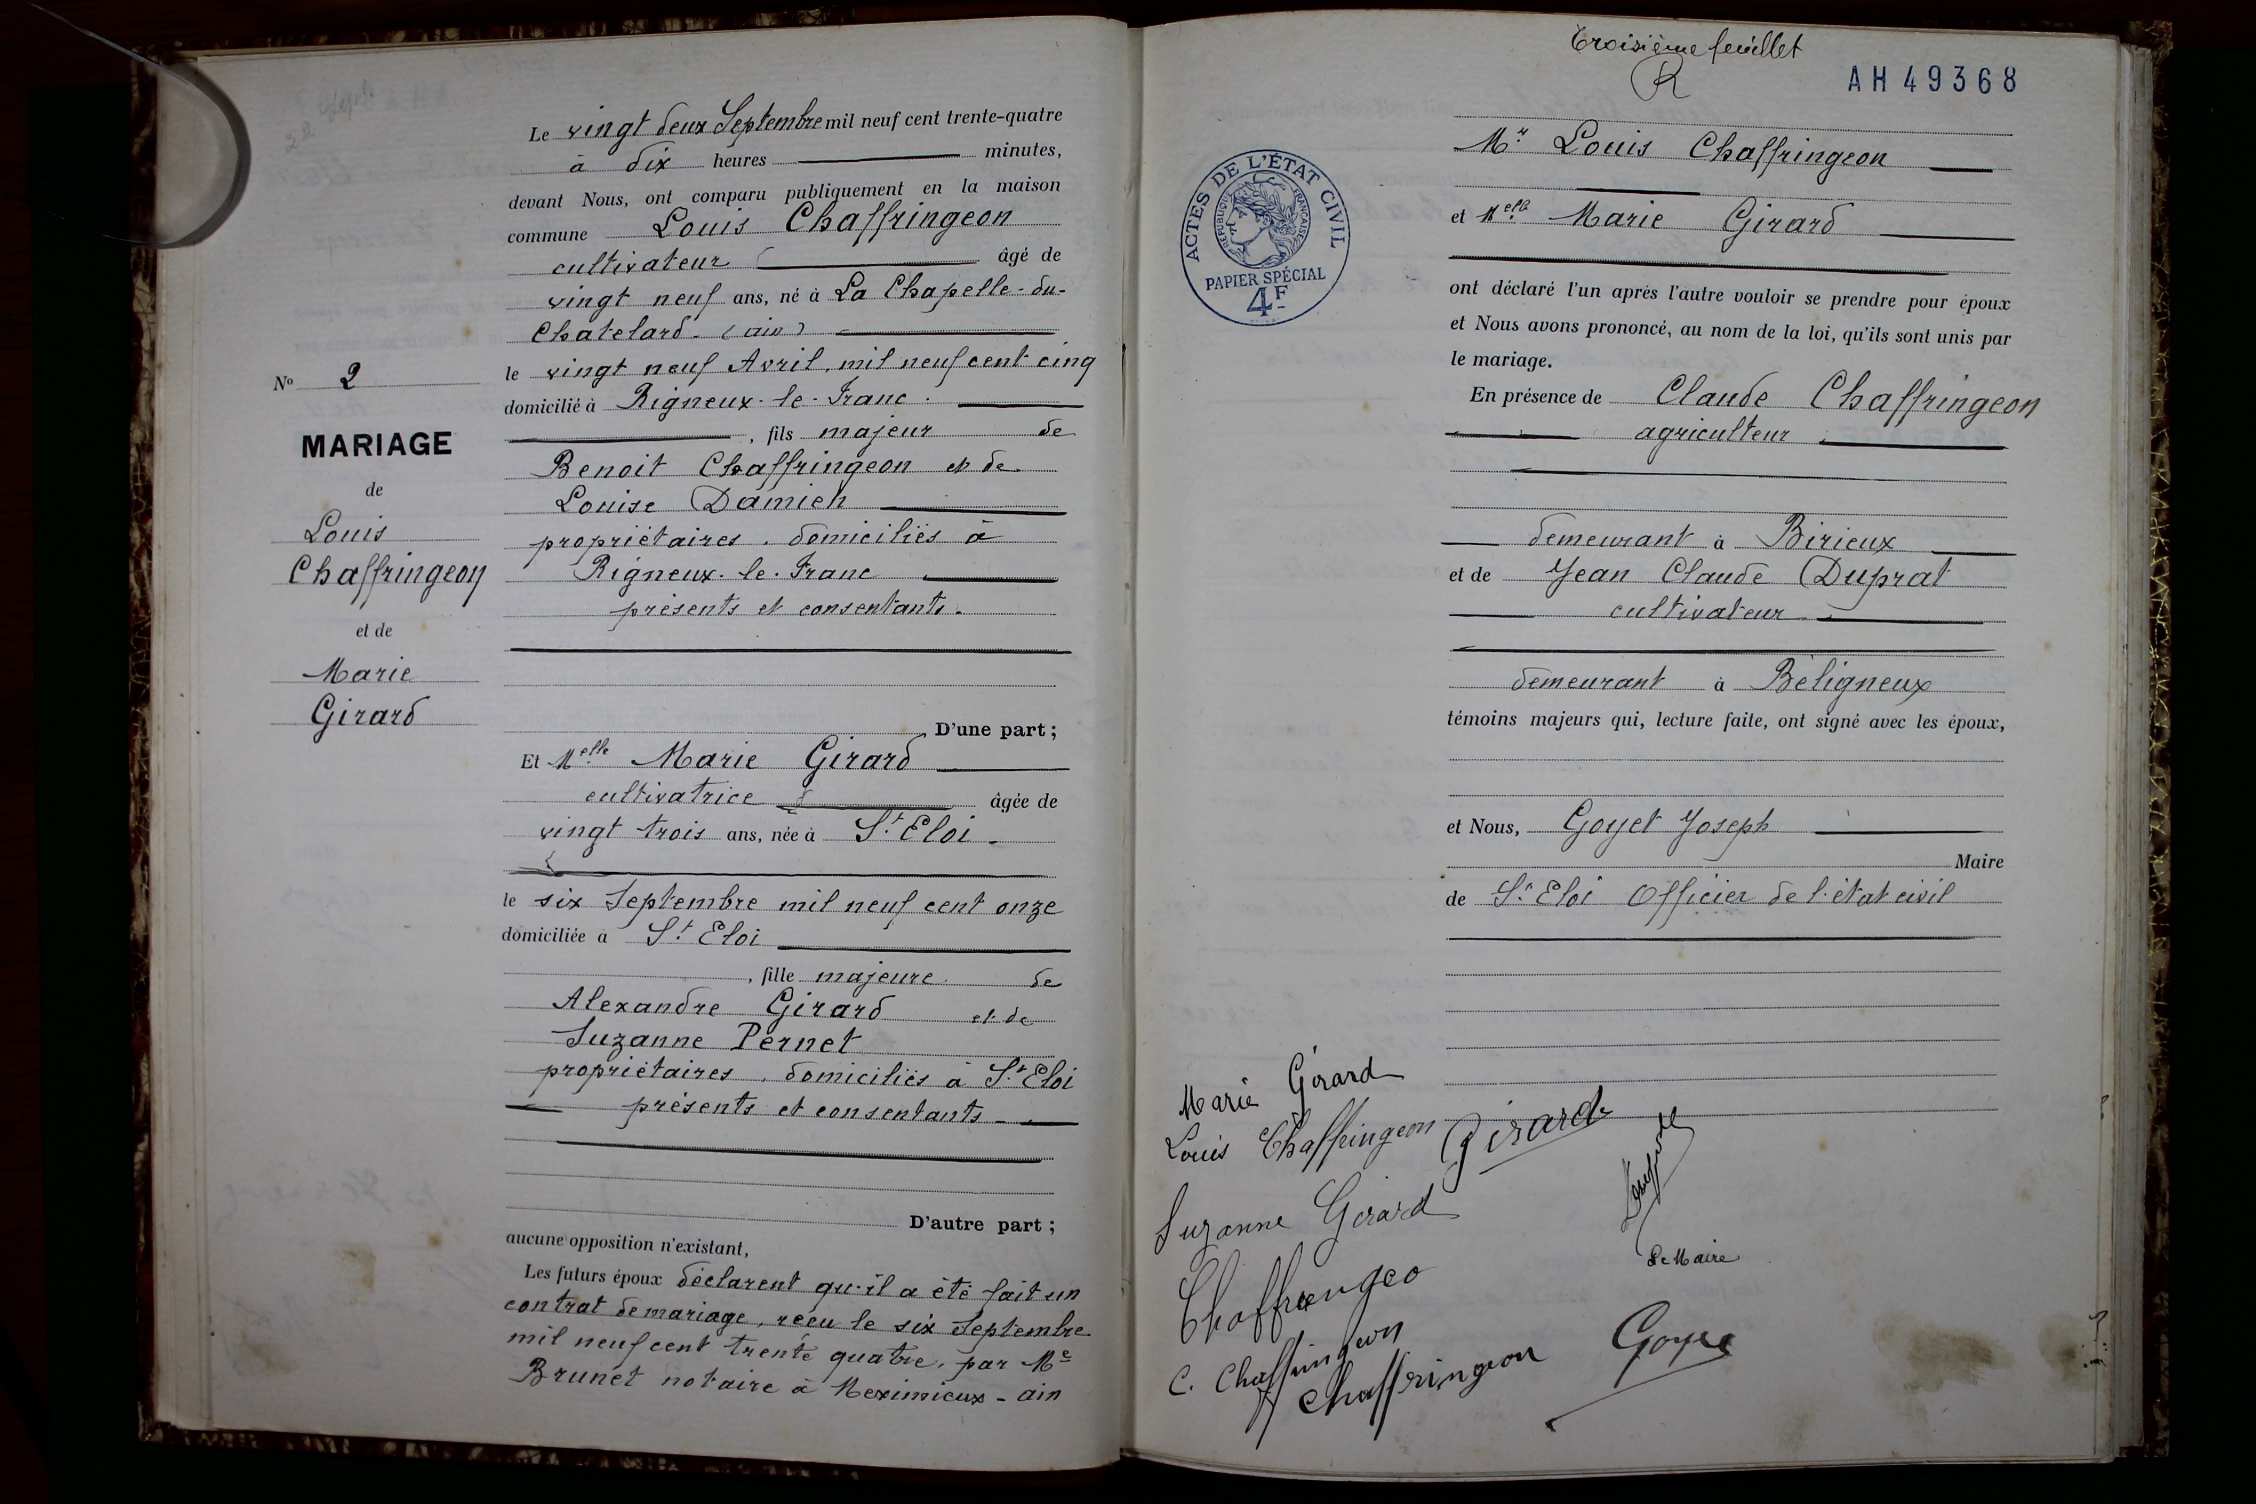 22 Sept
Le vingt deux Septembre mil neuf cent trente-quatre
à dix heures minutes,
devant Nous, ont comparu publiquement en la maison
commune Louis Chaffringeon
cultivateur âgé de
vingt neuf ans, né à La Chapelle-du-
Chatelard (ain)
le vingt neuf Avril, mil neuf cent cinq
domicilié à Rigneux-le-Franc
, fils majeur de
Benoit Chaffringeon et de
Louise Damien
propriétaires, domiciliés à
Rigneux-le-Franc
présents et consentants.
D'une part ;
Et Melle Marie Girard
cultivatrice âgée de
vingt trois ans, née à St Eloi
le six Septembre mil neuf cent onze
domiciliée à St Eloi
, fille majeure de
Alexandre Girard et de
Suzanne Pernet
propriétaires, domiciliés à St Eloi
présents et consentants
D'autre part ;
aucune opposition n'existant,
Les futurs époux déclarent qu'il a été fait un
contrat de mariage, réçu le six Septembre
mil neuf cent trente quatre, par Me
Brunet notaire à Meximieux - ain
No 2
MARIAGE
de
Louis
Chaffringeon
et de
Marie
Girard
Troisième feuillet
R
AH 49368
ACTES DE L'ÉTAT CIVIL
RÉPUBLIQUE FRANÇAISE
PAPIER SPÉCIAL
4F
Mr Louis Chaffringeon
et Melle Marie Girard
ont déclaré l'un après l'autre vouloir se prendre pour époux
et Nous avons prononcé, au nom de la loi, qu'ils sont unis par
le mariage.
En présence de Claude Chaffringeon
agriculteur
demeurant à Birieux
et de Jean Claude Duprat
cultivateur
demeurant à Béligneux
témoins majeurs qui, lecture faite, ont signé avec les époux,
et Nous, Goyet Joseph
Maire
de St Eloi Officier de l'état civil
Marie Girard
Louis Chaffringeon
Girard
Suzanne Girard
Le Maire
Chaffrengeo
C. Chaffringeon
Chaffringeon